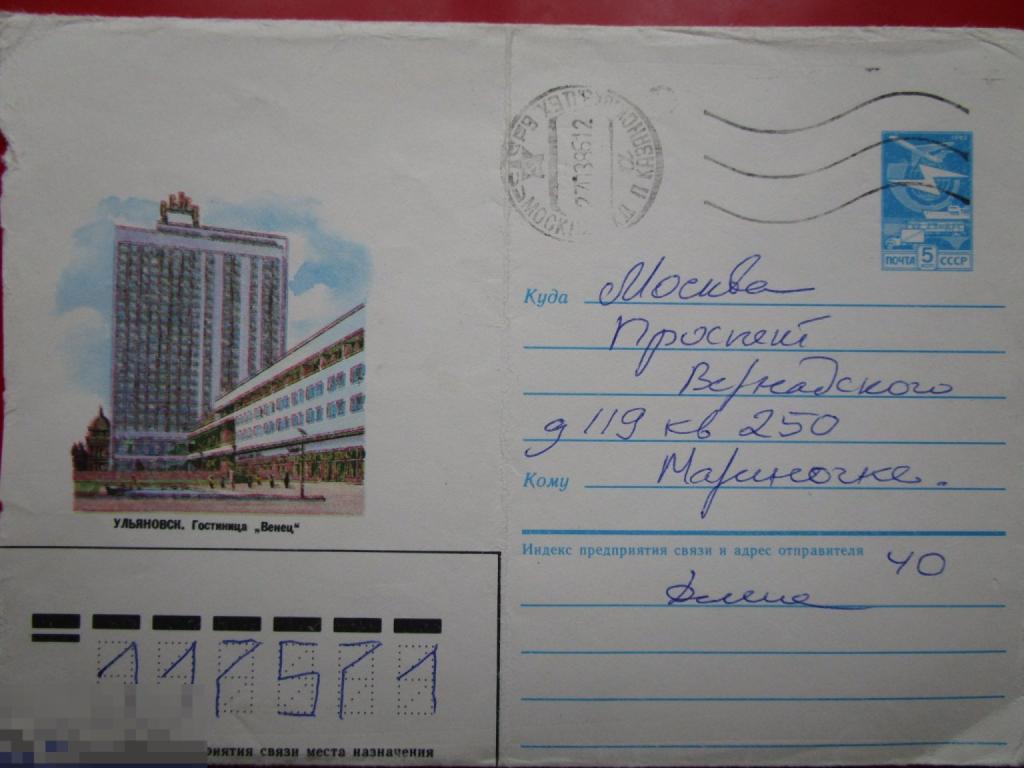 ПОЧТА 5 СССР
Куда Москва
Проспект
Вернадского
д 119 кв 250
Кому Мариночке.
УЛЬЯНОВСК. Гостиница „Венец“
Индекс предприятия связи и адрес отправителя
40
117571
приятия связи места назначения